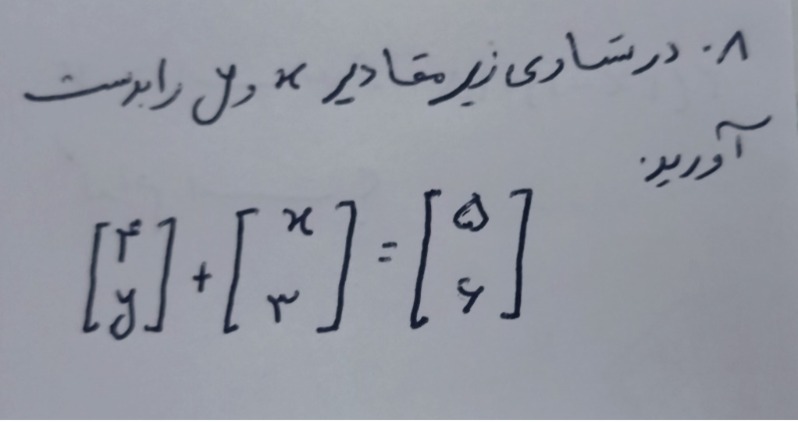 ۸. در تساوی زیر مقادیر x و y را بدست
آورید.
[۴ y] + [x ۳] = [۵ ۶]